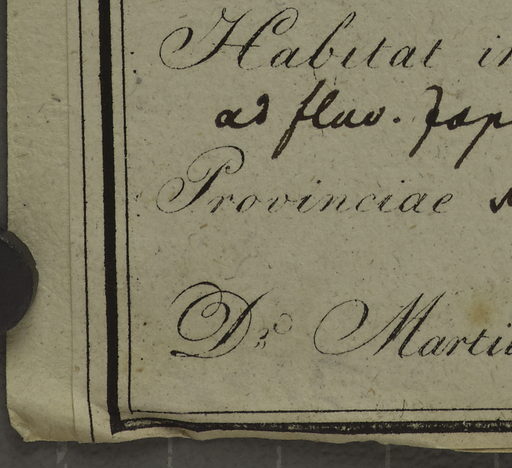 Habitat in
ad fluv. Jap
Provinciae
Dr. Martiu